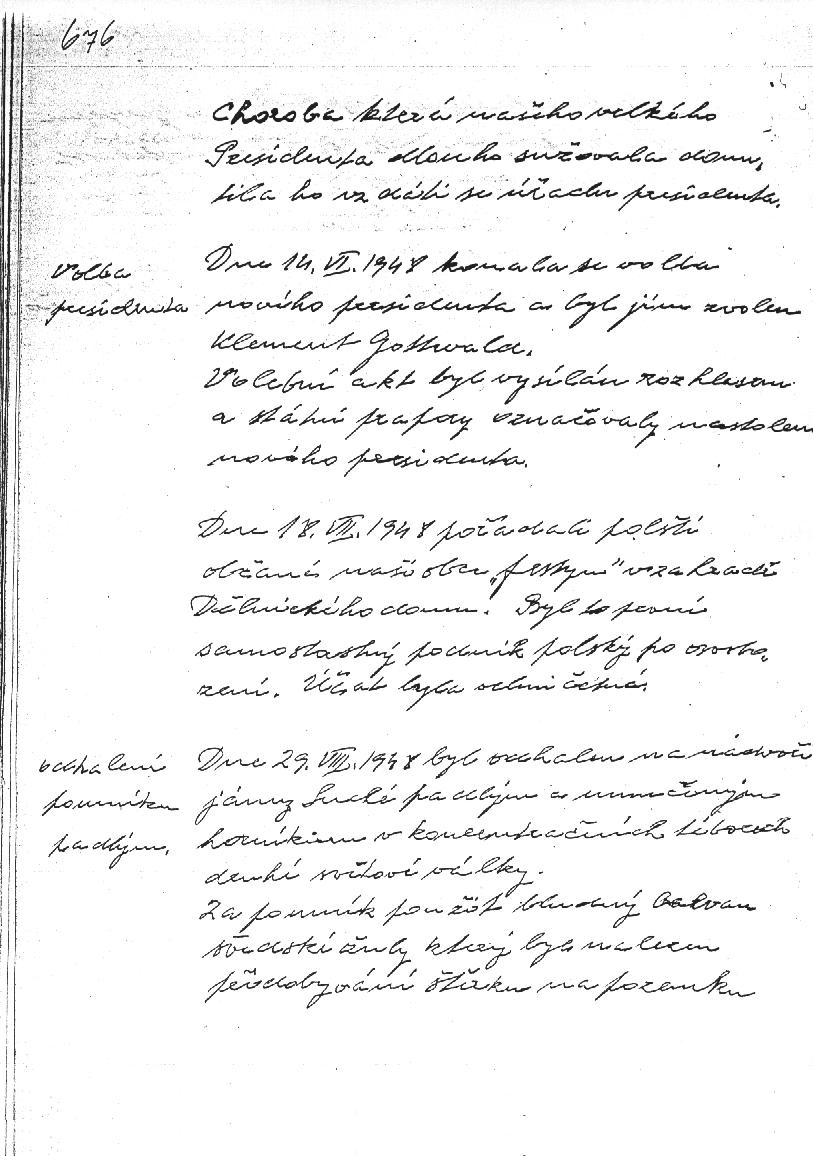 676
Choroba která našeho velkého
Presidenta dlouho sužovala donu,
tila ho vzdáti se úřadu presidenta.
Volba
presidenta
Dne 14. VI. 1948 konala se volba
nového presidenta a byl jím zvolen
Klement Gottwald.
Volební akt byl vysílán rozhlasem
a státní prapory označovaly nastolení
nového presidenta.
Dne 18. VII. 1948 pořádali polští
občané naší obce „festyn" v zahradě
Dělnického domu. Byl to první
samostatný podnik polský po osvobo,
zení. Účast byla velmi četná.
odhalení
pomníku
padlým.
Dne 29. VIII. 1948 byl odhalen na nádvoří
jámy Suché padlým a umučeným
horníkům v koncentračních táborech
druhé světové války.
Za pomník použit bludný balvan
švédské žuly který byl nalezen
při dobývání štěrku na pozemku